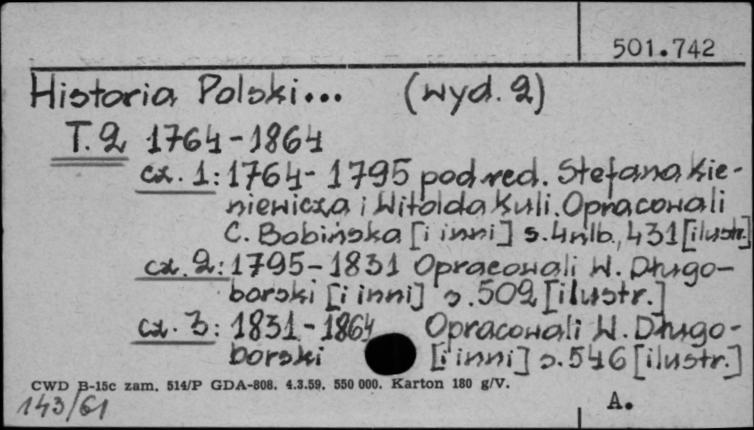 501.742
Historia Polski... (wyd. 2)
T. 2 1764-1864
cz. 1: 1764-1795 pod red. Stefana Kie-
niewicza i Witolda Kuli. Opracowali
C. Bobińska [i inni] s. 4nlb., 431 [ilustr.]
cz. 2: 1795-1831 Opracowali W. Długo-
borski [i inni] s. 502 [ilustr.]
cz. 3: 1831-1864 Opracowali W. Długo-
borski [i inni] s. 546 [ilustr.]
CWD B-15c zam. 514/P GDA-808. 4.3.59. 550 000. Karton 180 g/V.
143/61
A.